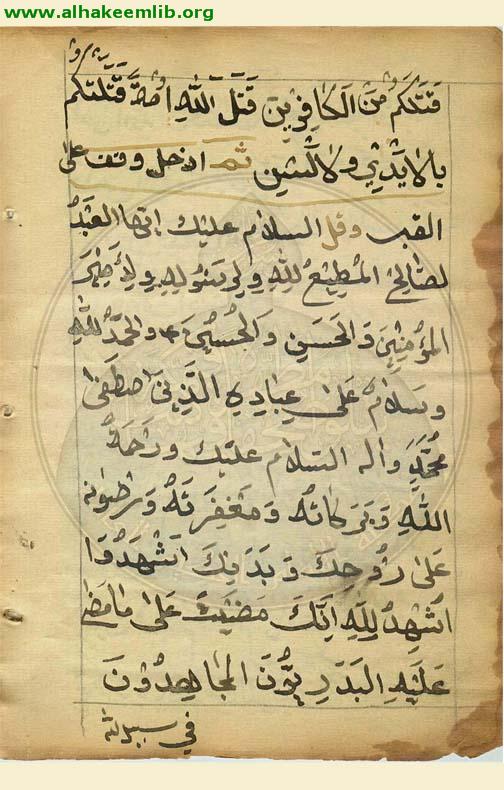 www.alhakeemlib.org
قَتَلَكُم مِنَ الكافِرينَ قَتَلَ اللهِ اُمَةً قَتَلَتكُم
بالاَيْدِي وَالاَلْسُنِ ثم ادخل وقف على
القبر وقل السلام عليك ايها العَبْدُ
لصّالِحُ المُطِيعُ للهِ وَلِرَسُولِهِ وَلِاَمِيرَ
المُؤمِنِينَ وَالحَسَنِ وَالحُسَيْنِ والحَمْدُ للهِ
وَسَلَامٌ عَلى عِبادِهِ الَّذِينَ اصطَفى
مُحَمَّدٍ واله السلام عليك ورَحمَةُ
اللهِ وَبَرَكاتُهُ وَمَغْفِرَتُهُ وَرضوانه
عَلى رُوحِكَ وَبَدَنِكَ اَشْهَدُ وَا
اُشْهِدُ للهِ اَنَّكَ مَضَيْتَ عَلى ما مَضى
عَلَيْهِ البَدْرِيُّونَ المُجاهِدُونَ
في سبيل الله